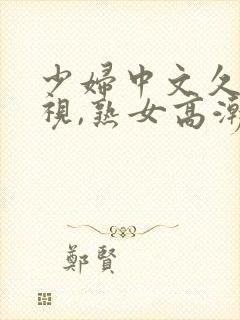 少婦中文久
視,熟女高潮
鄭賢